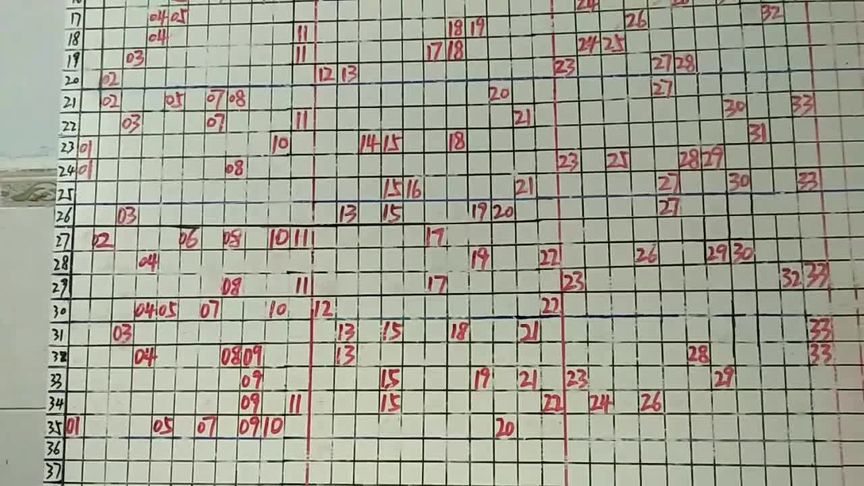 17 04 05 24
18 04 11 18 19 26 32
19 03 11 17 18 24 25
20 02 12 13 23 27 28
21 02 05 07 08 20 27
22 03 07 11 21 30 33
23 01 10 14 15 18 31
24 01 08 23 25 28 29
25 15 16 21 27 30 33
26 03 13 15 19 20 27
27 02 06 08 10 11 17
28 04 19 22 26 29 30
29 08 11 17 23 32 33
30 04 05 07 10 12 22
31 03 13 15 18 21 33
32 04 08 09 13 28 33
33 09 15 19 21 23 29
34 09 11 15 22 24 26
35 01 05 07 09 10 20
36
37